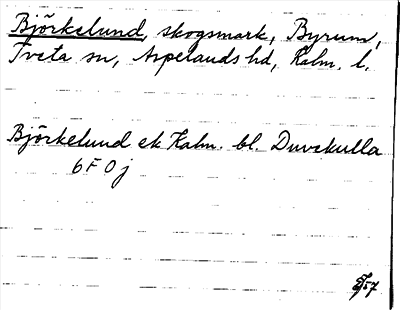 Björkelund, skogsmark, Byrum,
Tveta sn, Aspelands hd, Kalm. l.
Björkelund ek Kalm. bl. Duvekulla
6F0j